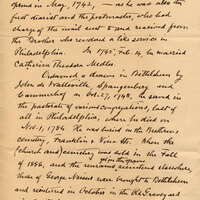 spend in May, 1742, — as he was also the
first diarist and the postmaster, who had
charge of the mail sent to and received from
the Brother who rendered a like service in
Philadelphia. In 1745, Feb. 14, he married
Catherine Theodora Medler.
Ordained a deacon in Bethlehem by
John de Watteville, Spangenberg, and
Cammerhof on Oct. 27, 1748, he served in
the pastorate of various congregations, last of
all in Philadelphia, where he died on
Nov. 1, 1784. He was buried in the Brethren's
cemetery, Franklin & Vine Sts. When the
church and cemetery was sold in the Fall
of 1886, and the remains reinterred elsewhere,
those of George Neisser were brought to Bethlehem
and reinterred in October in the